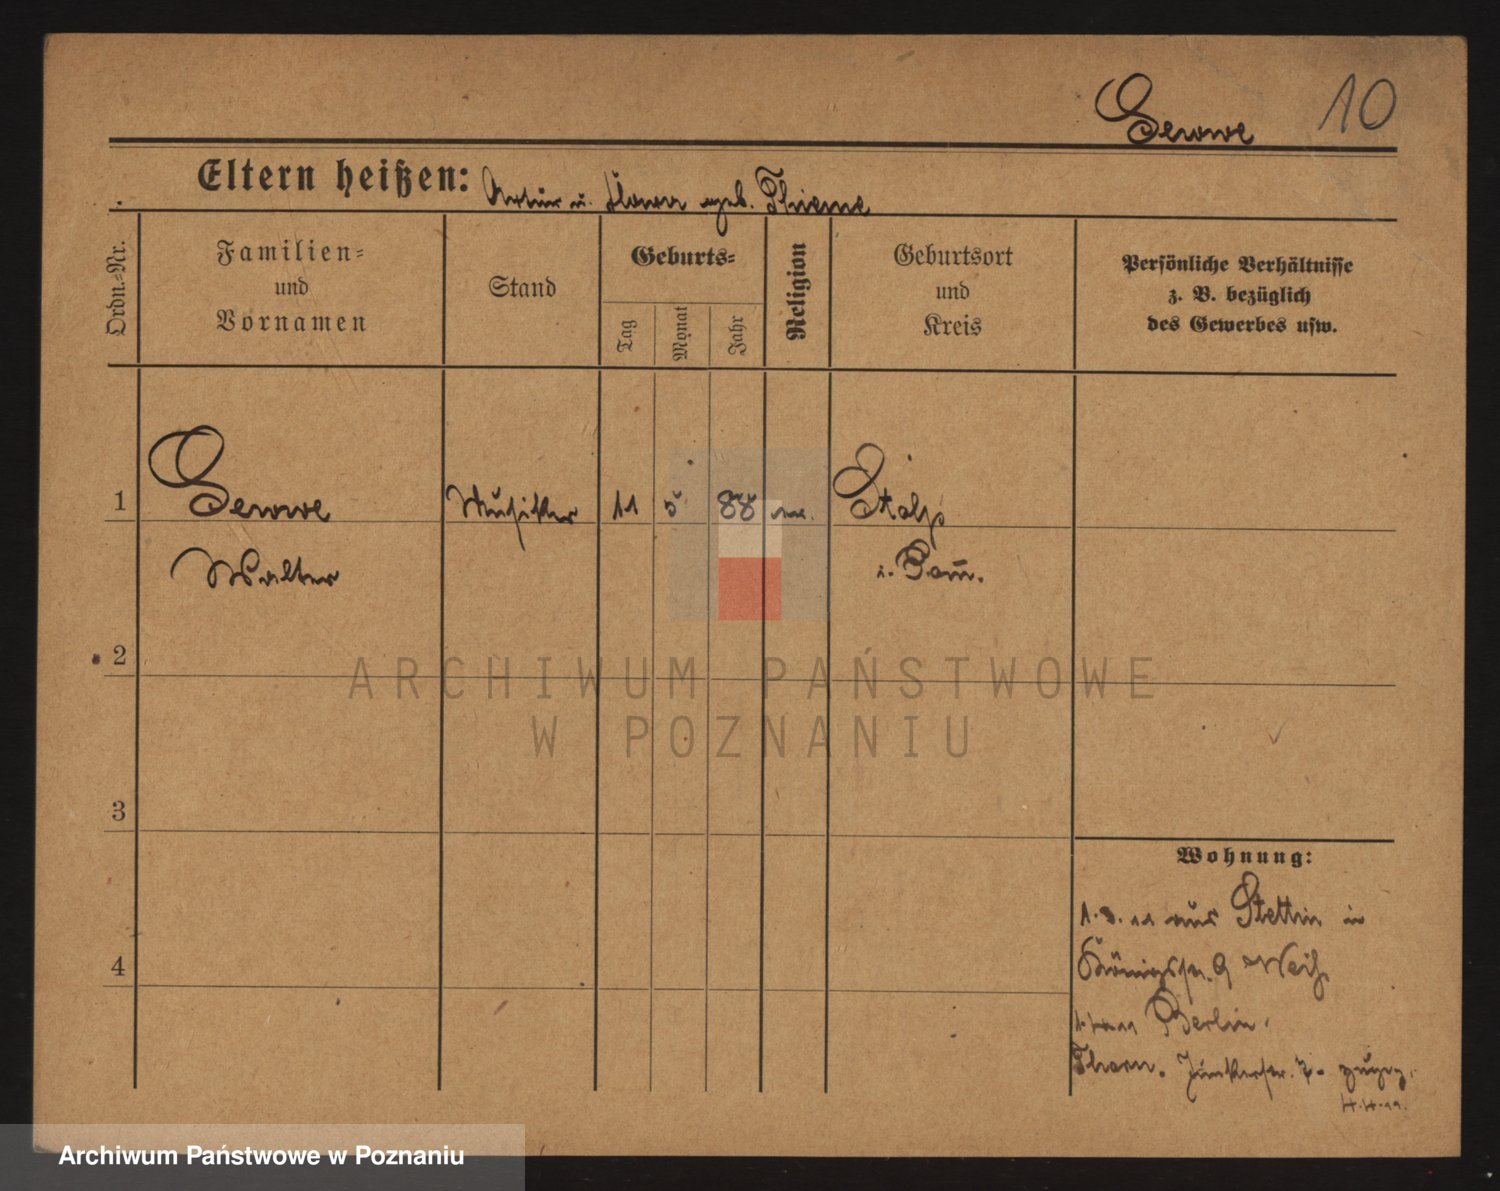 Gewwe 10
Eltern heißen: Artur u. geb. Thieme
Ordn.-Nr.
Familien-
und
Vornamen
Stand
Geburts-
Tag
Monat
Jahr
Religion
Geburtsort
und
Kreis
Persönliche Verhältnisse
z. B. bezüglich
des Gewerbes usw.
1 Musiker 11 5 88 Stolp
Walter i. Pom.
2
3
4
Wohnung:
aus Stettin in
Königstr. 9
Berlin.
Thorn. Junkerstr. 7.
4.4.11.
ARCHIWUM PAŃSTWOWE
W POZNANIU
Archiwum Państwowe w Poznaniu